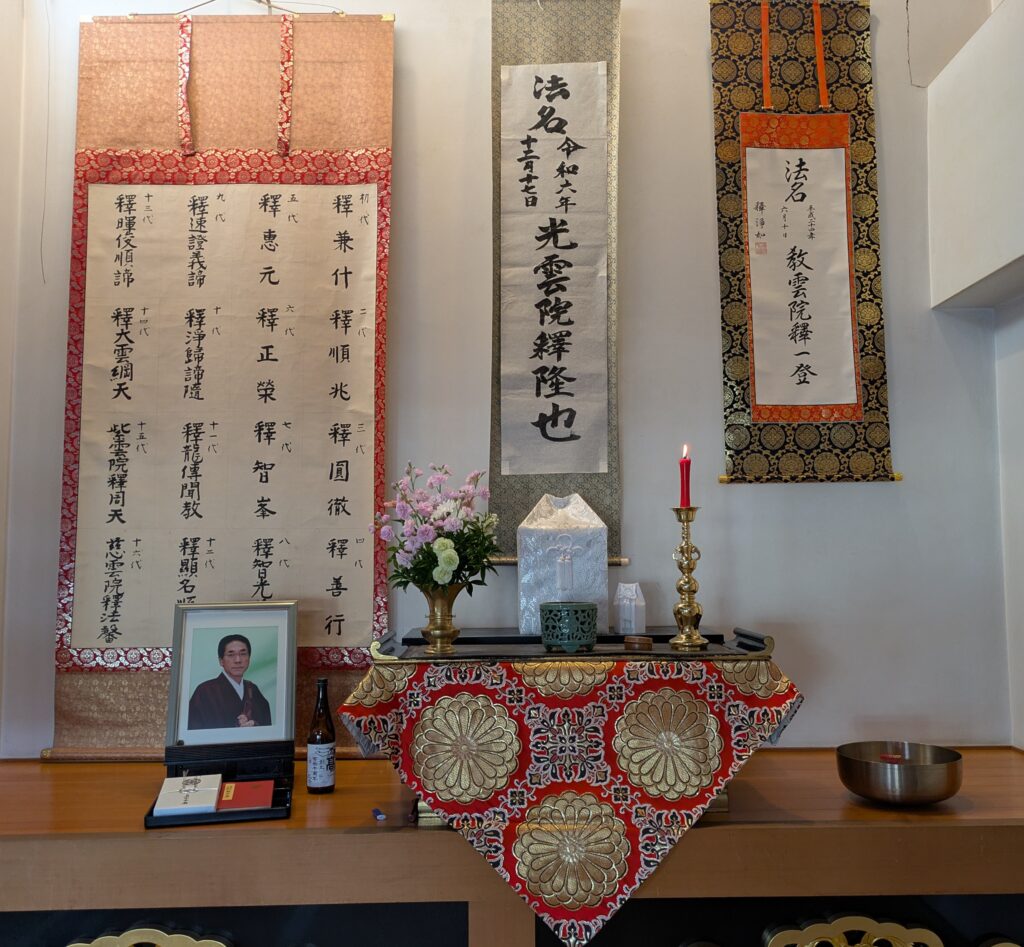 法名
六月十日
教雲院釋一登
釋淨如
法名
令和六年
十二月十七日
光雲院釋隆也
初代
釋兼什
二代
釋順兆
三代
釋圓徹
四代
釋善行
五代
釋惠元
六代
釋正榮
七代
釋智峯
八代
釋智光
九代
釋速證義諦
十代
釋淨歸諦隨
十一代
釋龍傳聞教
十二代
釋顯名順
十三代
順諦
十四代
釋大雲綱天
十五代
紫雲院釋周天
十六代
慈雲院釋法馨